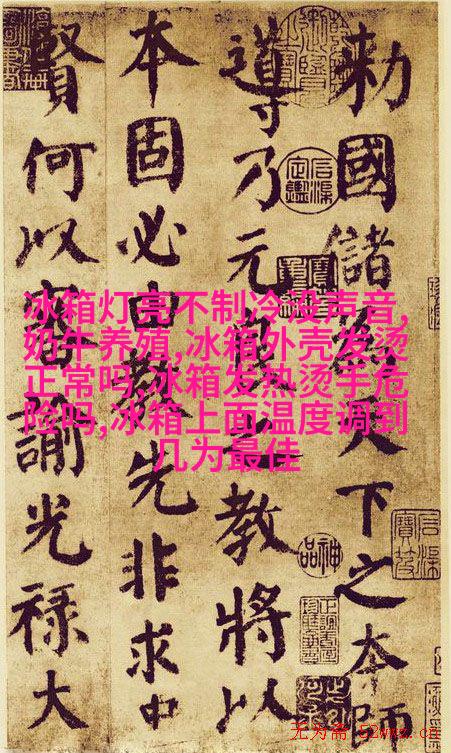 勅國儲為天下之本師
導乃元良之教將以
本固必由教先非求中
賢何以審諭光禄大
冰箱灯亮不制冷没声音,
奶牛养殖,冰箱外壳发烫
正常吗,冰箱发热烫手危
险吗,冰箱上面温度调到
几为最佳
神品
无为斋 52wws.cn